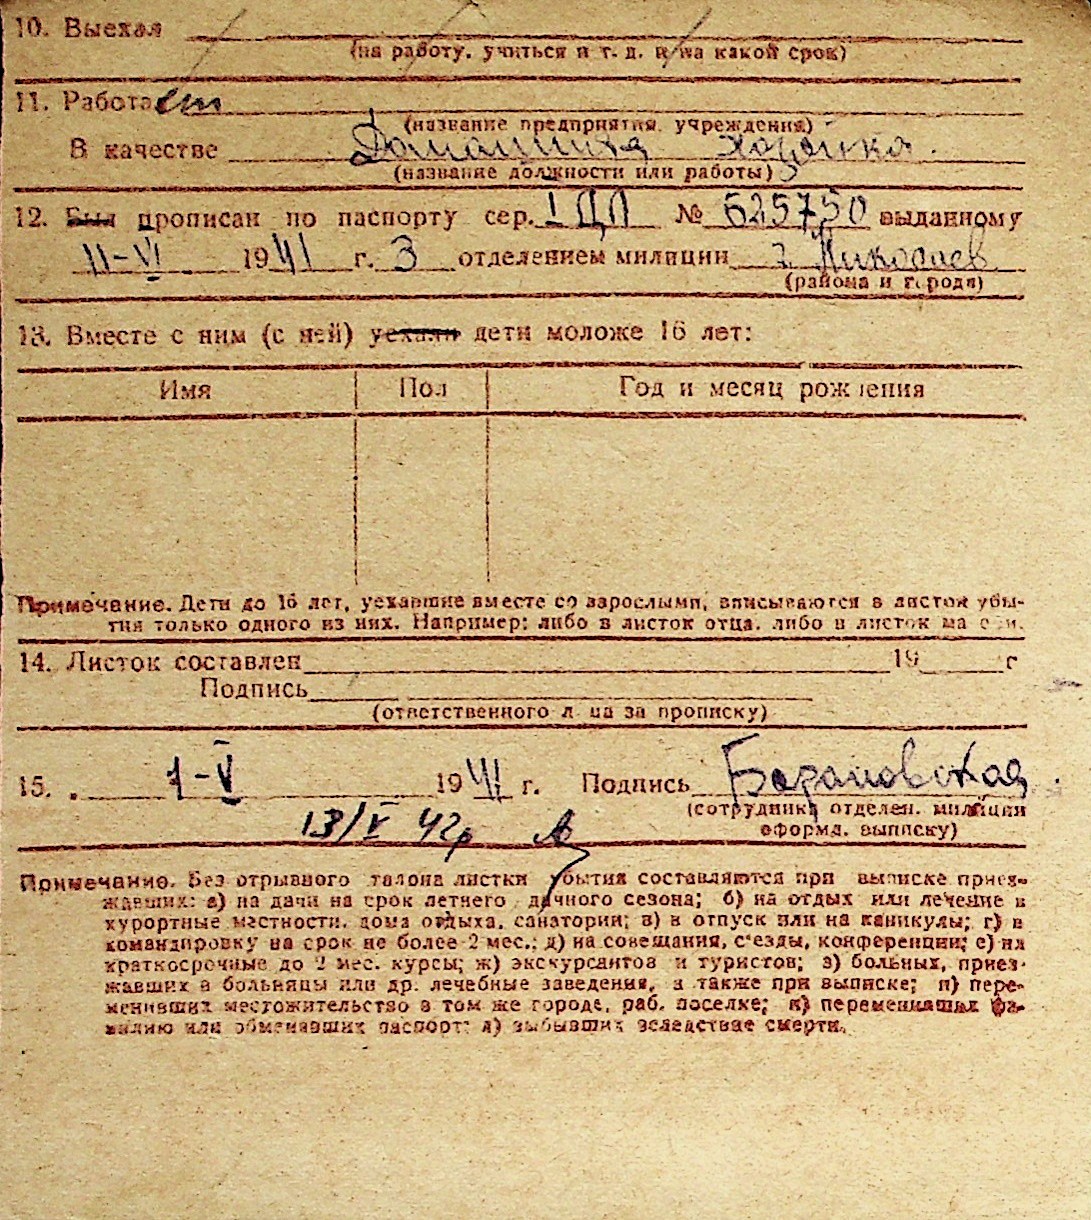 10. Выехал
(на работу, учиться и т. д. и на какой срок)
11. Работает
(название предприятия, учреждения)
В качестве Домашняя хозяйка.
(название должности или работы)
12. Был прописан по паспорту сер. I ЦП № 625750 выданному
11-VI 1941 г. 3 отделением милиции г. Николаев
(района и города)
13. Вместе с ним (с ней) уехали дети моложе 16 лет:
Имя Пол Год и месяц рождения
Примечание. Дети до 16 лет, уехавшие вместе со взрослыми, вписываются в листок убы-
тия только одного из них. Например: либо в листок отца, либо в листок матери.
14. Листок составлен 19 г
Подпись
(ответственного лица за прописку)
15. 1-V 1941 г. Подпись Барановская
(сотрудника отделен. милиции
оформл. выписку)
13/V 42г
Примечание. Без отрывного талона листки убытия составляются при выписке приез-
жавших: а) на дачи на срок летнего дачного сезона; б) на отдых или лечение в
курортные местности, дома отдыха, санатории; в) в отпуск или на каникулы; г) в
командировку на срок не более 2 мес.; д) на совещания, с'езды, конференции; е) на
краткосрочные до 2 мес. курсы; ж) экскурсантов и туристов; з) больных, приез-
жавших в больницы или др. лечебные заведения, а также при выписке; и) пере-
менивших местожительство в том же городе, раб. поселке; к) переменивших фа-
милию или обменявших паспорт; л) выбывших вследствие смерти.